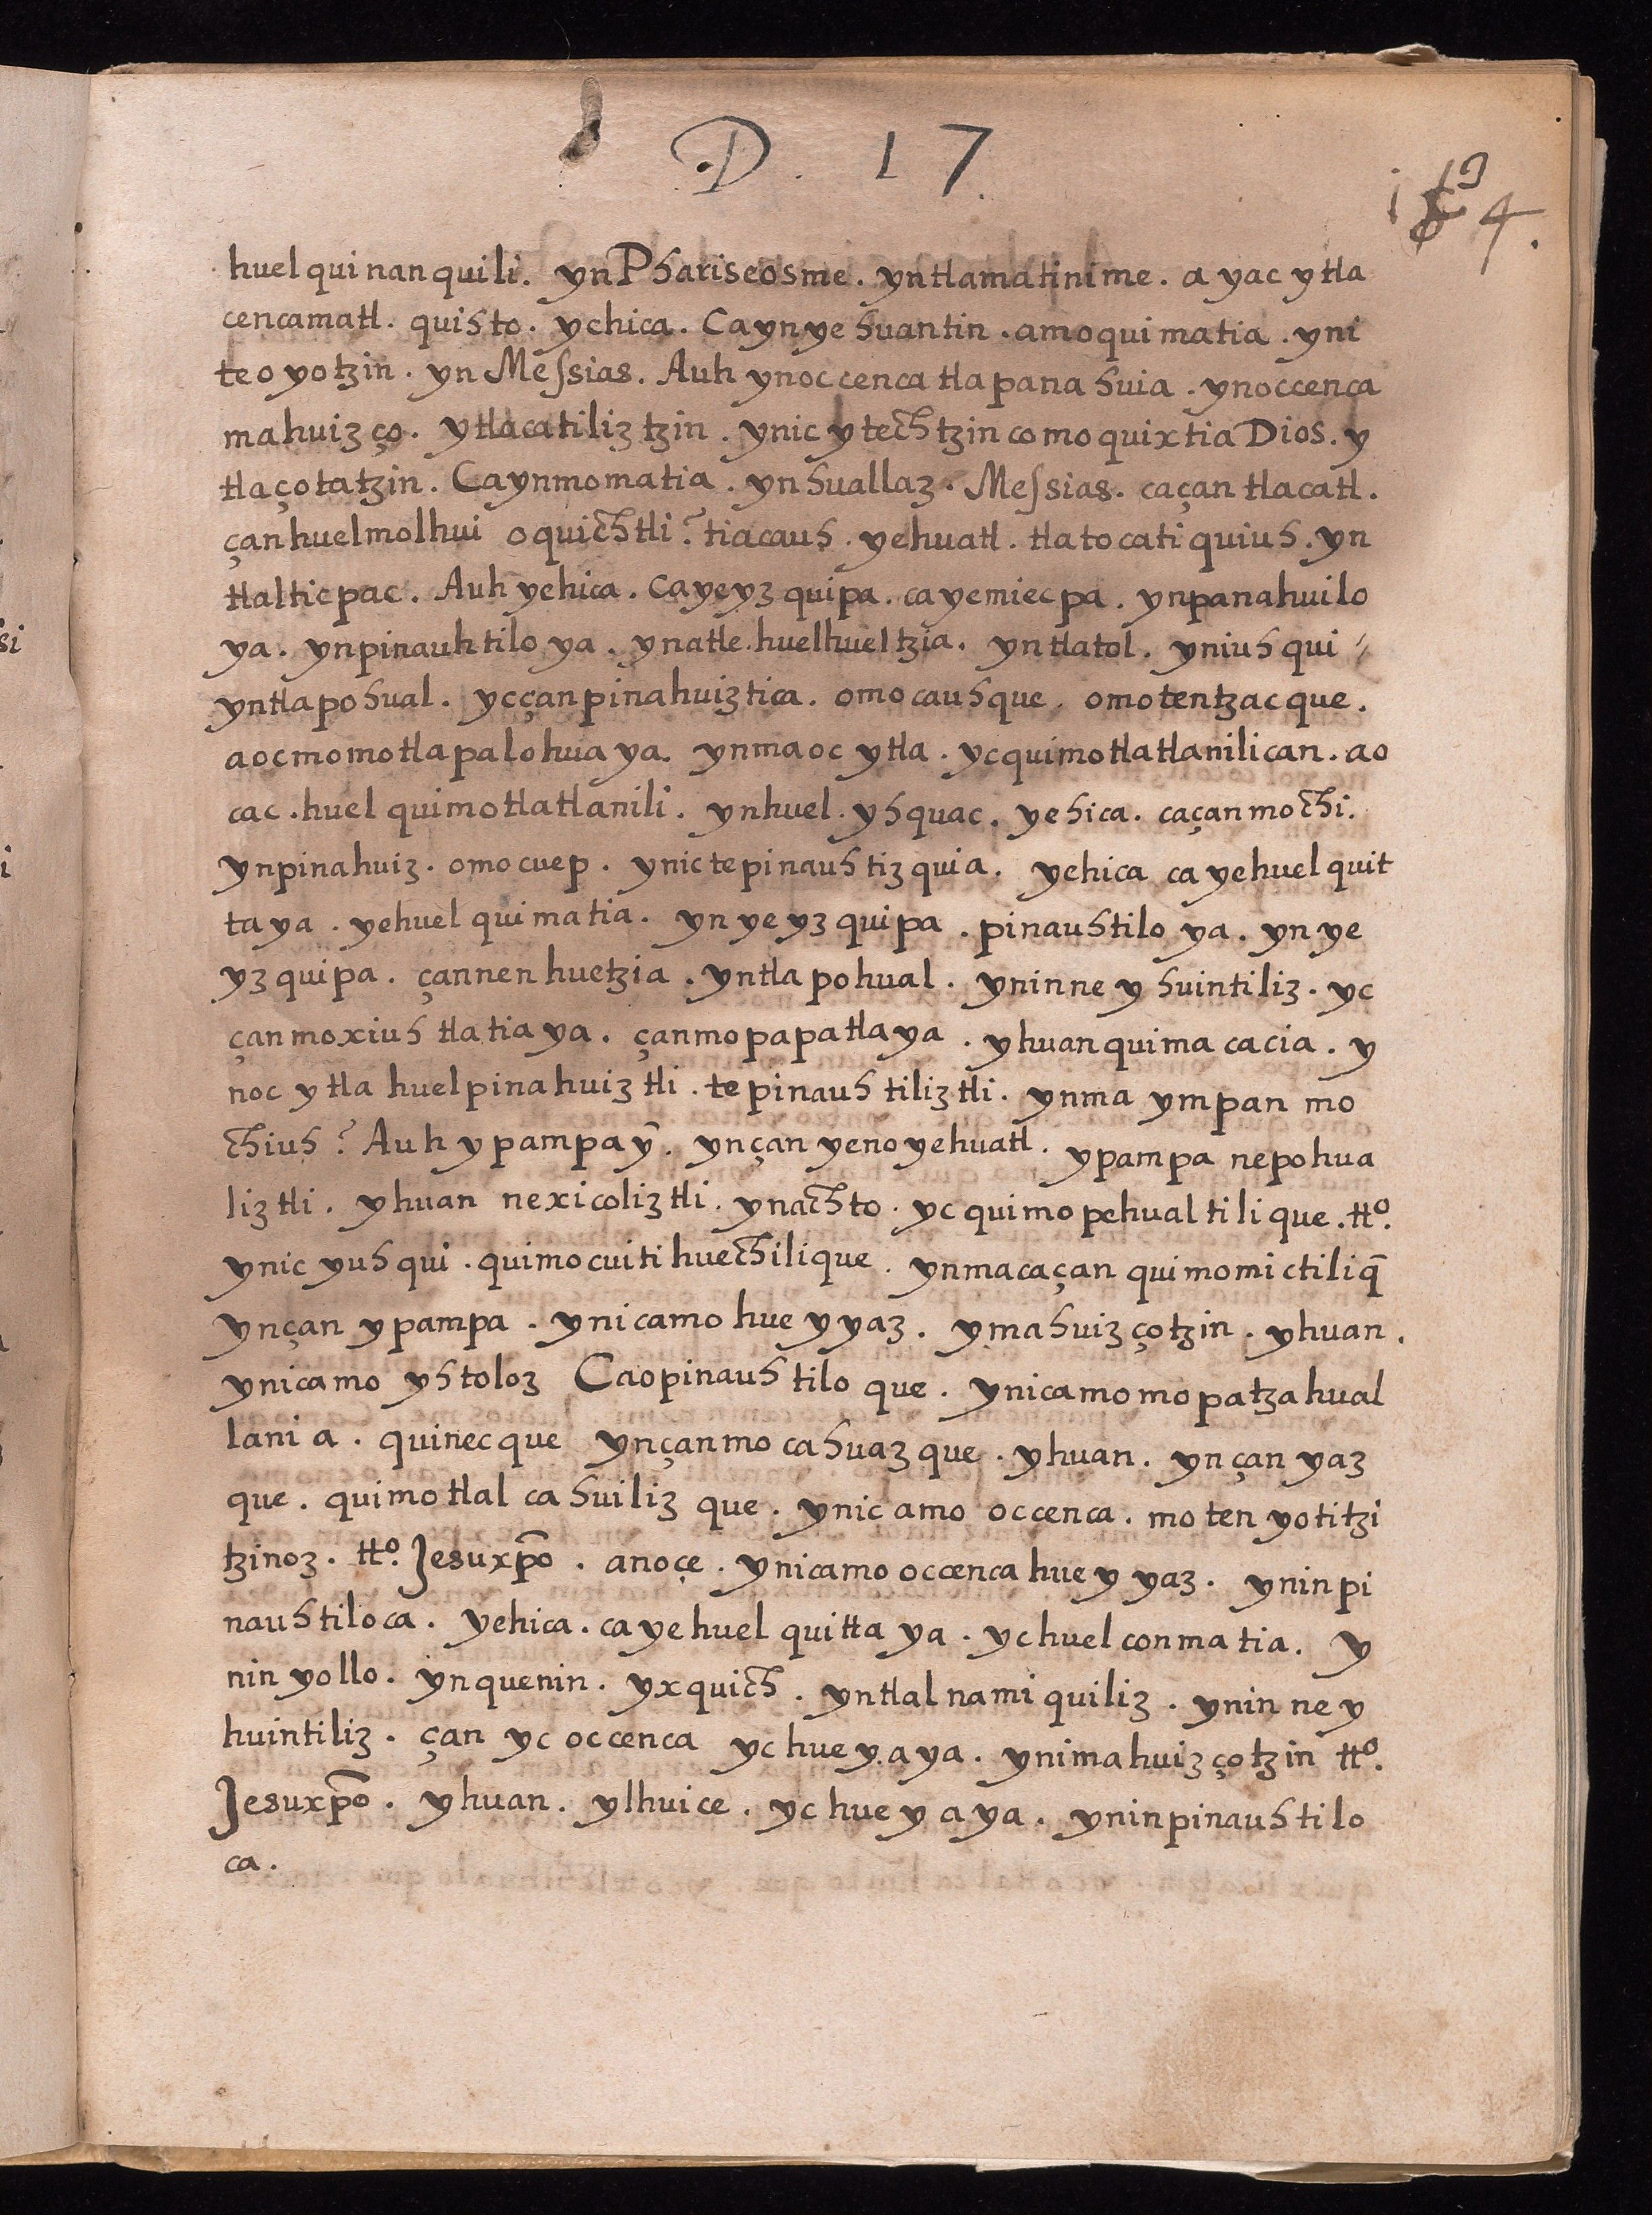 D. 17.
huel quinanquili. yn Phariseosme. yn tlamatinime. a yac ytla
cencamatl. quihto. yehica. Ca yn yehuantin. amo quimatia. yni
teoyotzin. yn Messias. Auh yn occenca tlapanahuia. yn occenca
mahuizço. ytlacatiliztzin. ynic ytechtzinco moquixtia Dios. y
tlaçotatzin. Ca ynmomatia. yn huallaz. Messias. ca çan tlacatl.
çan huel molhui oquichtli? tiacauh. yehuatl. tlatocatiquiuh. yn
tlalticpac. Auh yehica. ca ye yzquipa. ca ye miecpa. yn panahuilo
ya. yn pinauhtiloya. yn atle. huelhueltzia. yn tlatol. yn iuhqui
yn tlapohual. yc çan pinahuiztica. omocauhque. omotentzacque.
aocmo motlapalohuaya. yn ma oc ytla. yc quimotlatlanilican. ao
cac. huel quimotlatlanili. yn huel. yhquac. yehica. ca çan mochi.
yn pinahuiz. omocuep. ynic tepinauhtizquia. yehica ca ye huel quit
taya. ye huel quimatia. yn ye yzquipa. pinauhtiloya. yn ye
yzquipa. çan nen huetzia. yn tlapohual. ynin neyhuintiliz. yc
çan moxiuhtlatiaya. çan mopapatlaya. yhuan quimacacia. y
noc ytla huel pinahuiztli. tepinauhtiliztli. yn ma ympan mo
chiuh? Auh ypampa ȳ. yn çan ye no yehuatl. ypampa nepohua
liztli. yhuan nexicoliztli. yn achto. yc quimopehualtilique. tto.
ynic yuhqui. quimocuitihuechilique. yn maca çan quimomictiliq̄
yn çan ypampa. ynic amo hueyyaz. ymahuizçotzin. yhuan.
ynic amo yhtoloz Ca opinauhtiloque. ynic amo mopatzahual
lania. quinecque yn çan mocahuazque. yhuan. yn çan yaz
que. quimotlalcahuilizque. ynic amo occenca. motenyotitzi
tzinoz. tto. Jesuxp̄o. anoçe. ynic amo occenca hueyyaz. ynin pi
nauhtiloca. yehica. ca ye huel quittaya. yc huel conmatia. y
nin yollo. yn quenin. yxquich. yn tlalnamiquiliz. ynin ney
huintiliz. çan yc occenca yc hueyaya. yn imahuizçotzin tto.
Jesuxp̄o. yhuan. ylhuice. yc hueyaya. ynin pinauhtilo
ca.